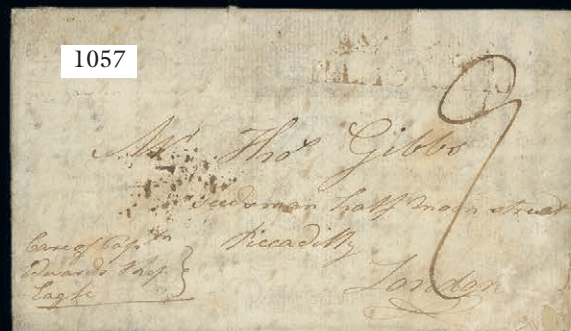 1057
9
Mr. Thos Gibbs
half moon street
Piccadilly
London
Care of Captn
Edwards Ship
Eagle